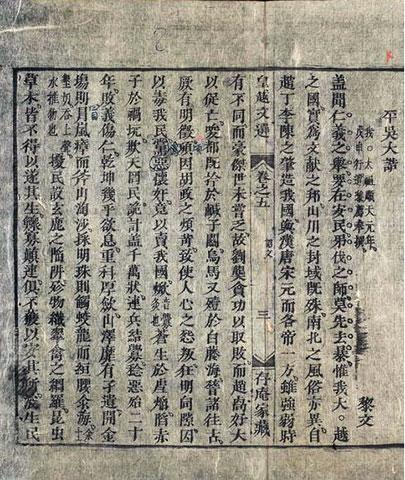 平吳大誥
我太祖順天元年
黎文
蓋聞仁義之舉要在安民弔伐之師莫先去暴惟我大越
之國實爲文獻之邦山川之封域旣殊南北之風俗亦異自
趙丁李陳之肇造我國與漢唐宋元而各帝一方雖強弱時
皇越文選 卷之五 誥文 三 存庵家藏
有不同而豪傑世未嘗乏故劉龑貪功以取敗而趙卨好大
以促亡唆都旣擒於鹹子關烏馬又殪於白藤海稽諸往古
厥有明徵頃因胡政之煩苛致使人心之怨叛狂明伺隙因
以毒我民惡黨懷奸竟以賣我國焮蒼生於虐焰陷赤
子於禍坑欺天罔民詭計蓋千萬狀連兵結釁稔惡殆二十
年敗義傷仁乾坤幾乎欲息重科厚斂山澤靡有孑遺開金
塲則冒嵐瘴而斧山淘沙採明珠則觸蛟龍而絙腰汆海
水推物也 擾民設玄鹿之陷阱殄物織翠禽之網羅昆虫
草木皆不得以遂其生鰥寡顛連俱不獲以安其所浚生民